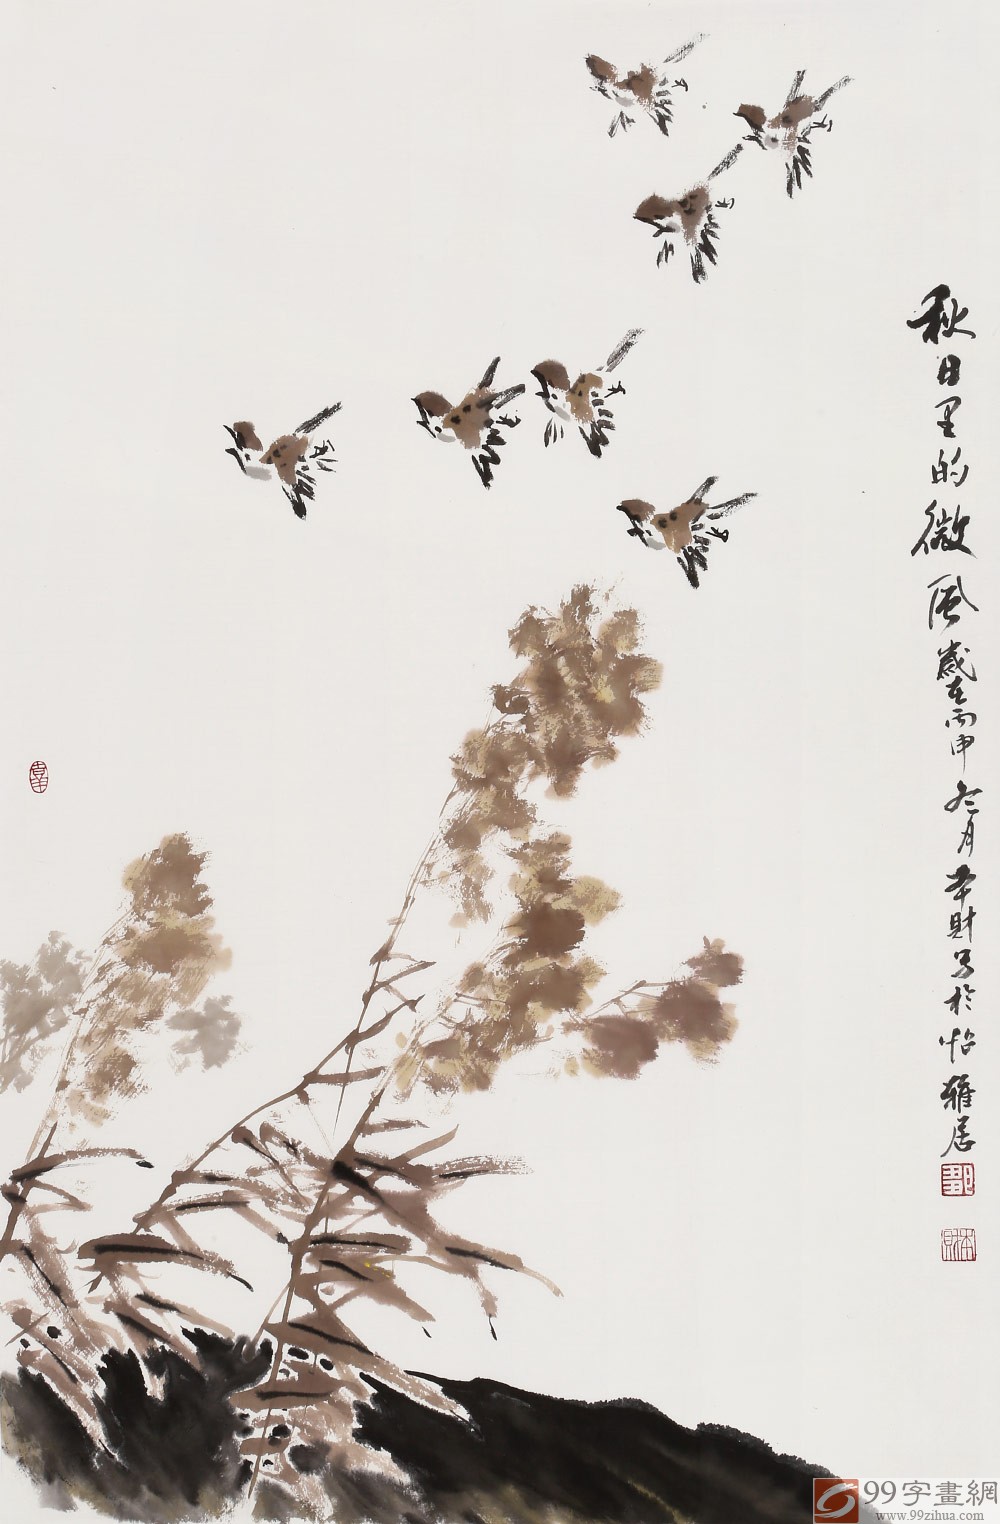 秋日里的微风歳在丙申冬月本财写於怡雅居
99字畫網
www.99zihua.com